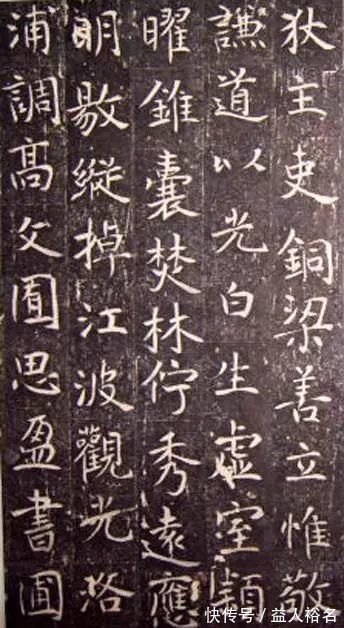 狄王吏銅梁善立惟敬
謙道以光白生虛室穎
曜錐囊焚林佇秀遠應
明敭縱棹江波觀光洛
浦調高文囿思盈書圃
快传号/益人裕名